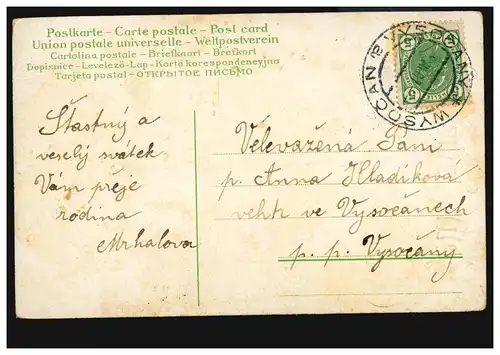 Postkarte - Carte postale - Post card
Union postale universelle - Weltpostverein
Cartolina postale - Briefkaart - Brefkort
Dopisnice - Levelező-Lap - Karta korespondencyjna
Tarjeta postal - ОТКРЫТОЕ ПИСЬМО
VYSOČANY
WYSOČAN
5
5
Šťastný a
veselý svátek
Vám přeje
rodina
Mrhalova
Velevažená Paní
p. Anna Hladíková
ve Vysočanech
p. p. Vysočany